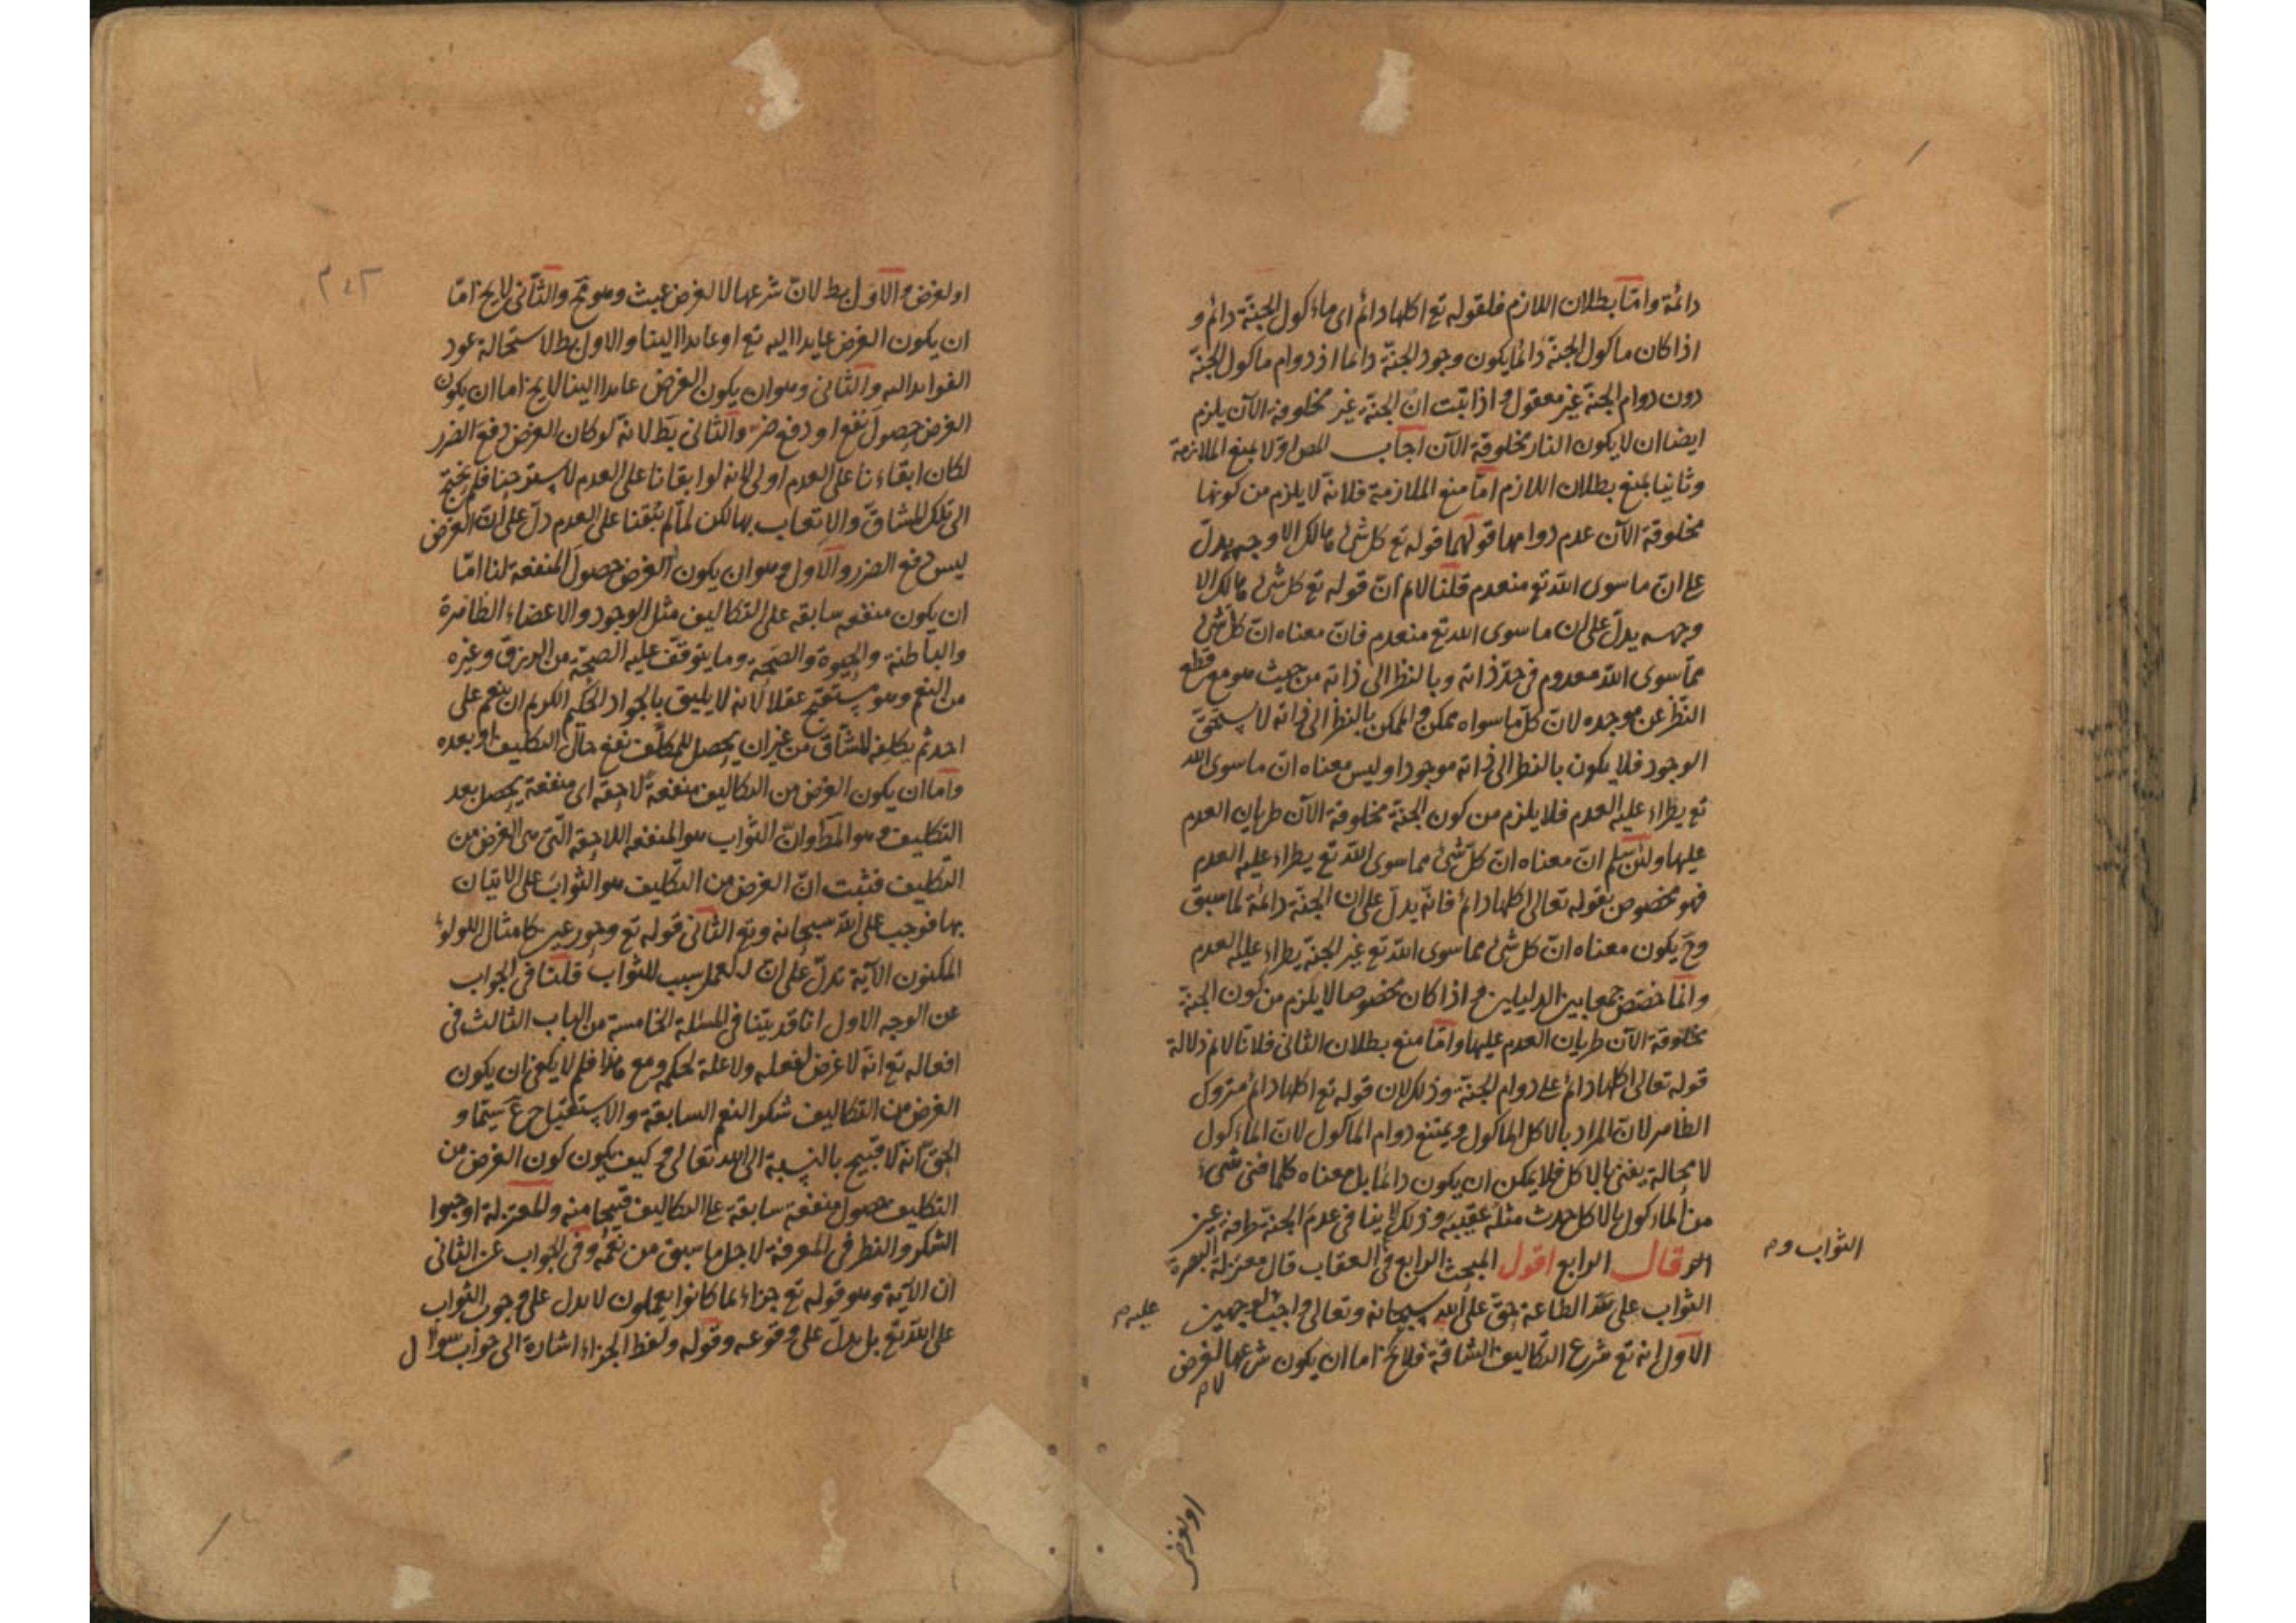 دائمة واما بطلان اللازم فلقوله تع اكلها دائم اى ماءكول الجنة دائم و
اذا كان ماكول الجنة دائما يكون وجود الجنة دائما اذ دوام ماكول الجنة
دون دوام الجنة غير معقول و اذا ثبت انّ الجنة غير مخلوقة الآن يلزم
ايضا ان لا يكون النار مخلوقة الآن اجاب المص اولا بمنع الملازمة
وثانيا بمنع بطلان اللازم امّا منع الملازمة فلانه لا يلزم من كونها
مخلوقة الآن عدم دوامها قولهما قوله تع كل شئ هالك الا وجهه يدلّ
على انّ ما سوى الله تع منعدم قلنا لانم انّ قوله تع كل شئ هالك الا
وجهه يدلّ على ان ما سوى الله تع منعدم فانّ معناه انّ كل شئ
ممّا سوى الله معدوم فى حدّ ذاته وبالنظر الى ذاته من حيث هو مع قطع
النظر عن موجده لانّ كلّ ما سواه ممكن و الممكن بالنظر الى ذاته لا يستحقّ
الوجود فلا يكون بالنظر الى ذاته موجودا وليس معناه انّ ما سوى الله
تع يطراء عليه العدم فلا يلزم من كون الجنة مخلوقة الآن طريان العدم
عليها ولئن سلم انّ معناه انّ كلّ شئ مما سوى الله تع يطراء عليه العدم
فهو مخصوص بقوله تعالى اكلها دائم فانّه يدلّ على ان الجنة دائمة لما سبق
وح يكون معناه انّ كل شئ مما سوى الله تع غير الجنة يطراء عليه العدم
وانما خصّص جمعا بين الدليلين و اذا كان مخصوصا لا يلزم من كون الجنة
مخلوقة الآن طريان العدم عليها وامّا منع بطلان الثانى فلانا لانم دلالة
قوله تعالى اكلها دائم على دوام الجنة وذلك لان قوله تع اكلها دائم متروك
الظاهر لانّ المراد بالاكل الماكول ويمتنع دوام الماكول لانّ الماءكول
لا محالة يفنى بالاكل فلا يمكن ان يكون دائما بل معناه كلما فنى شىء
من الماءكول بالاكل حدث مثله عقيبه وذلك لا ينافى عدم الجنة طرفة عين
قال الرابع اقول المبحث الرابع فى العقاب قال معتزلة البصرة
الثواب و م
الثواب على الطاعة حقّ على الله سبحانه وتعالى واجب لوجهين
عليه م
الاول انه تع شرع التكاليف الشاقة فلايخ اما ان يكون شرعها لغرض
لا م
اولغرض
٢٠٢
او لغرض و الاول بط لانّ شرعها لا لغرض عبث وهو قبيح والثانى لايخ امّا
ان يكون الغرض عايدا اليه تع او عايدا الينا والاول بط لاستحالة عود
الفوايد اليه والثانى وهو ان يكون الغرض عايدا الينا لايخ اما ان يكون
الغرض حصول نفع او دفع ضرّ والثانى بط لانه لو كان الغرض دفع الضرر
لكان ابقاءنا على العدم اولى لانه لو ابقانا على العدم لاسترحنا فلم يحتج
الى تلك المشاقّ والاتعاب بها لكن لمّا لم يبقنا على العدم دلّ على انّ الغرض
ليس دفع الضرر والاول وهو ان يكون الغرض حصول المنفعة لنا امّا
ان يكون منفعه سابقه على التكاليف مثل الوجود والاعضاء الظاهرة
والباطنة والحيوة والصّحة وما يتوقف عليه الصحّة من الرزق وغيره
من النعم وهو مستقبح عقلا لانه لا يليق بالجواد الحكيم الكريم ان ينعم على
احد ثم يكلفه المشاقّ من غير ان يحصل للمكلّف نفع حال التكليف او بعده
واما ان يكون الغرض من التكاليف منفعة لاحقه اى منفعة يحصل بعد
التكليف وهو المط وانّ الثواب هو المنفعه اللاحقه التى هى الغرض من
التكليف فثبت انّ الغرض من التكليف هو الثواب على الاتيان
بها فوجب على الله سبحانه وتع الثانى قوله تع وحور عين كامثال اللولؤ
المكنون الآية تدلّ على انّ العمل سبب للثواب قلنا فى الجواب
عن الوجه الاول انا قد بيّنا فى المسئلة الخامسة من الباب الثالث فى
افعاله تع انّه لا غرض لفعله ولا علة لحكمه ومع هذا فلم لا يكفى ان يكون
الغرض من التكاليف شكر النعم السابقة والاستقباح مم سيّما و
الحقّ انّه لا قبيح بالنسبة الى الله تعالى و كيف يكون كون الغرض من
التكليف حصول منفعة سابقة على التكاليف قبيحا منه والمعتزلة اوجبوا
الشكر والنظر فى المعرفة لاجل ما سبق من نعمه وفى الجواب عن الثانى
ان الآية وهو قوله تع جزاء بما كانوا يعملون لا يدل على وجوب الثواب
على الله تع بل يدل على وقوعه وقوله ولفظ الجزاء اشارة الى جواب سوال